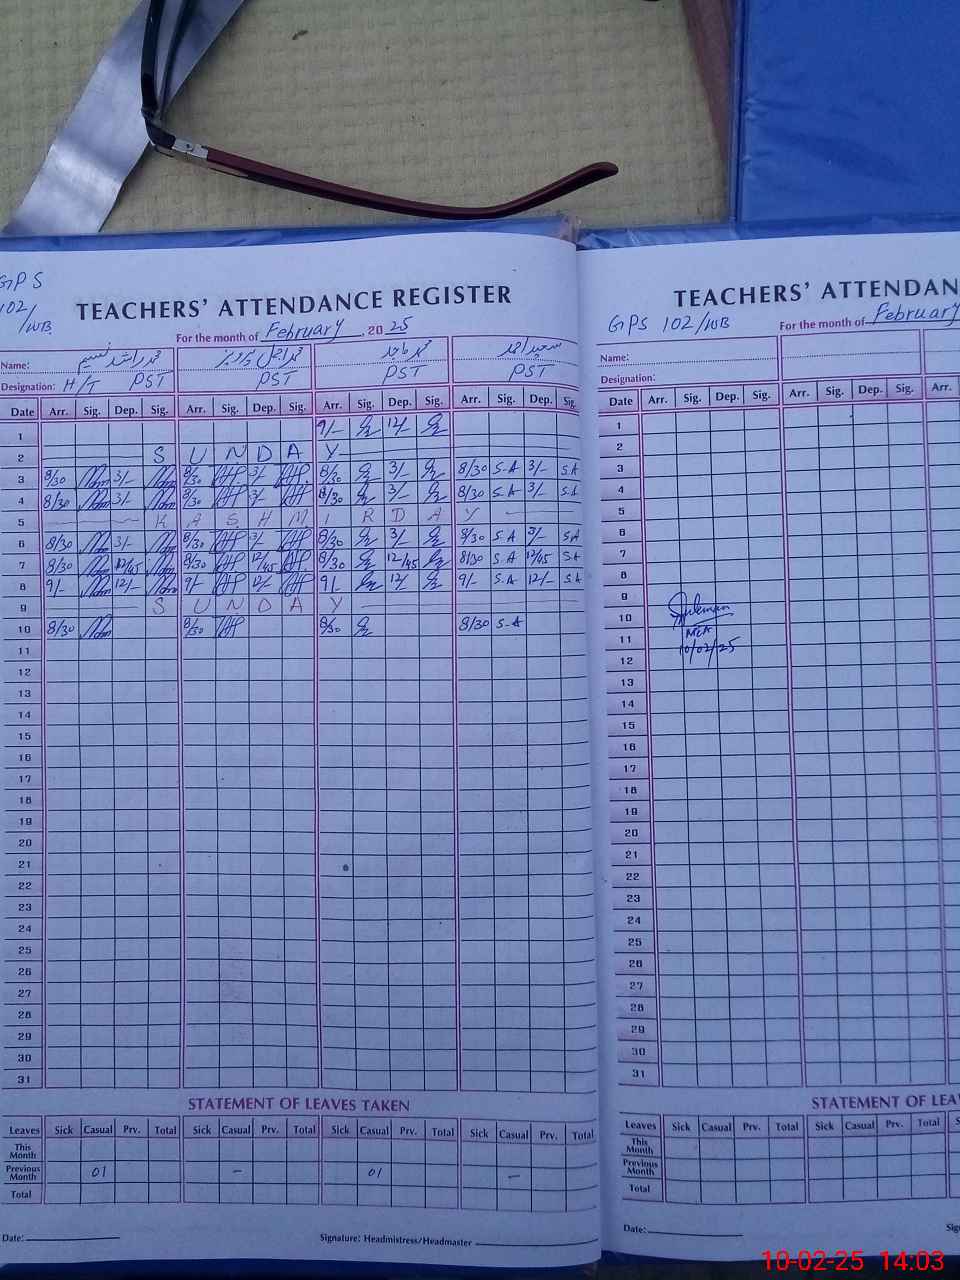 GPS
102/
/WB
TEACHERS' ATTENDANCE REGISTER
For the month of February 2025
Name: محمد راشد نسیم محمد ماجد سعید احمد
Designation: H/T PST PST PST PST
Date Arr. Sig. Dep. Sig. Arr. Sig. Dep. Sig. Arr. Sig. Dep. Sig. Arr. Sig. Dep. Sig.
1 9/- 12/-
2 S U N D A Y
3 8/30 3/- 8/30 3/- 8/30 3/- 8/30 S-A 3/- S.A
4 8/30 3/- 8/30 3/- 8/30 3/- 8/30 S-A 3/- S.A
5 K A S H M I R D A Y
6 8/30 3/- 8/30 3/- 8/30 3/- 8/30 S-A 3/- S.A
7 8/30 12/45 8/30 12/45 8/30 12/45 8/30 S-A 12/45 S.A
8 9/- 12/- 9/- 12/- 9/- 12/- 9/- S-A 12/- S.A
9 S U N D A Y
10 8/30 8/30 8/30 8/30 S-A
11
12
13
14
15
16
17
18
19
20
21
22
23
24
25
26
27
28
29
30
31
STATEMENT OF LEAVES TAKEN
Leaves Sick Casual Prv. Total Sick Casual Prv. Total Sick Casual Prv. Total Sick Casual Prv. Total
This Month
Previous Month 01 - 01 -
Total
Date: Signature: Headmistress/Headmaster
TEACHERS' ATTENDAN
GPS 102/WB For the month of February
Name:
Designation:
Date Arr. Sig. Dep. Sig. Arr. Sig. Dep. Sig. Arr.
1
2
3
4
5
6
7
8
9
10
11
12
13
14
15
16
17
18
19
20
21
22
23
24
25
26
27
28
29
30
31
MEA
10/02/25
STATEMENT OF LEA
Leaves Sick Casual Prv. Total Sick Casual Prv. Total S
This Month
Previous Month
Total
Date: Sig
10-02-25 14:03